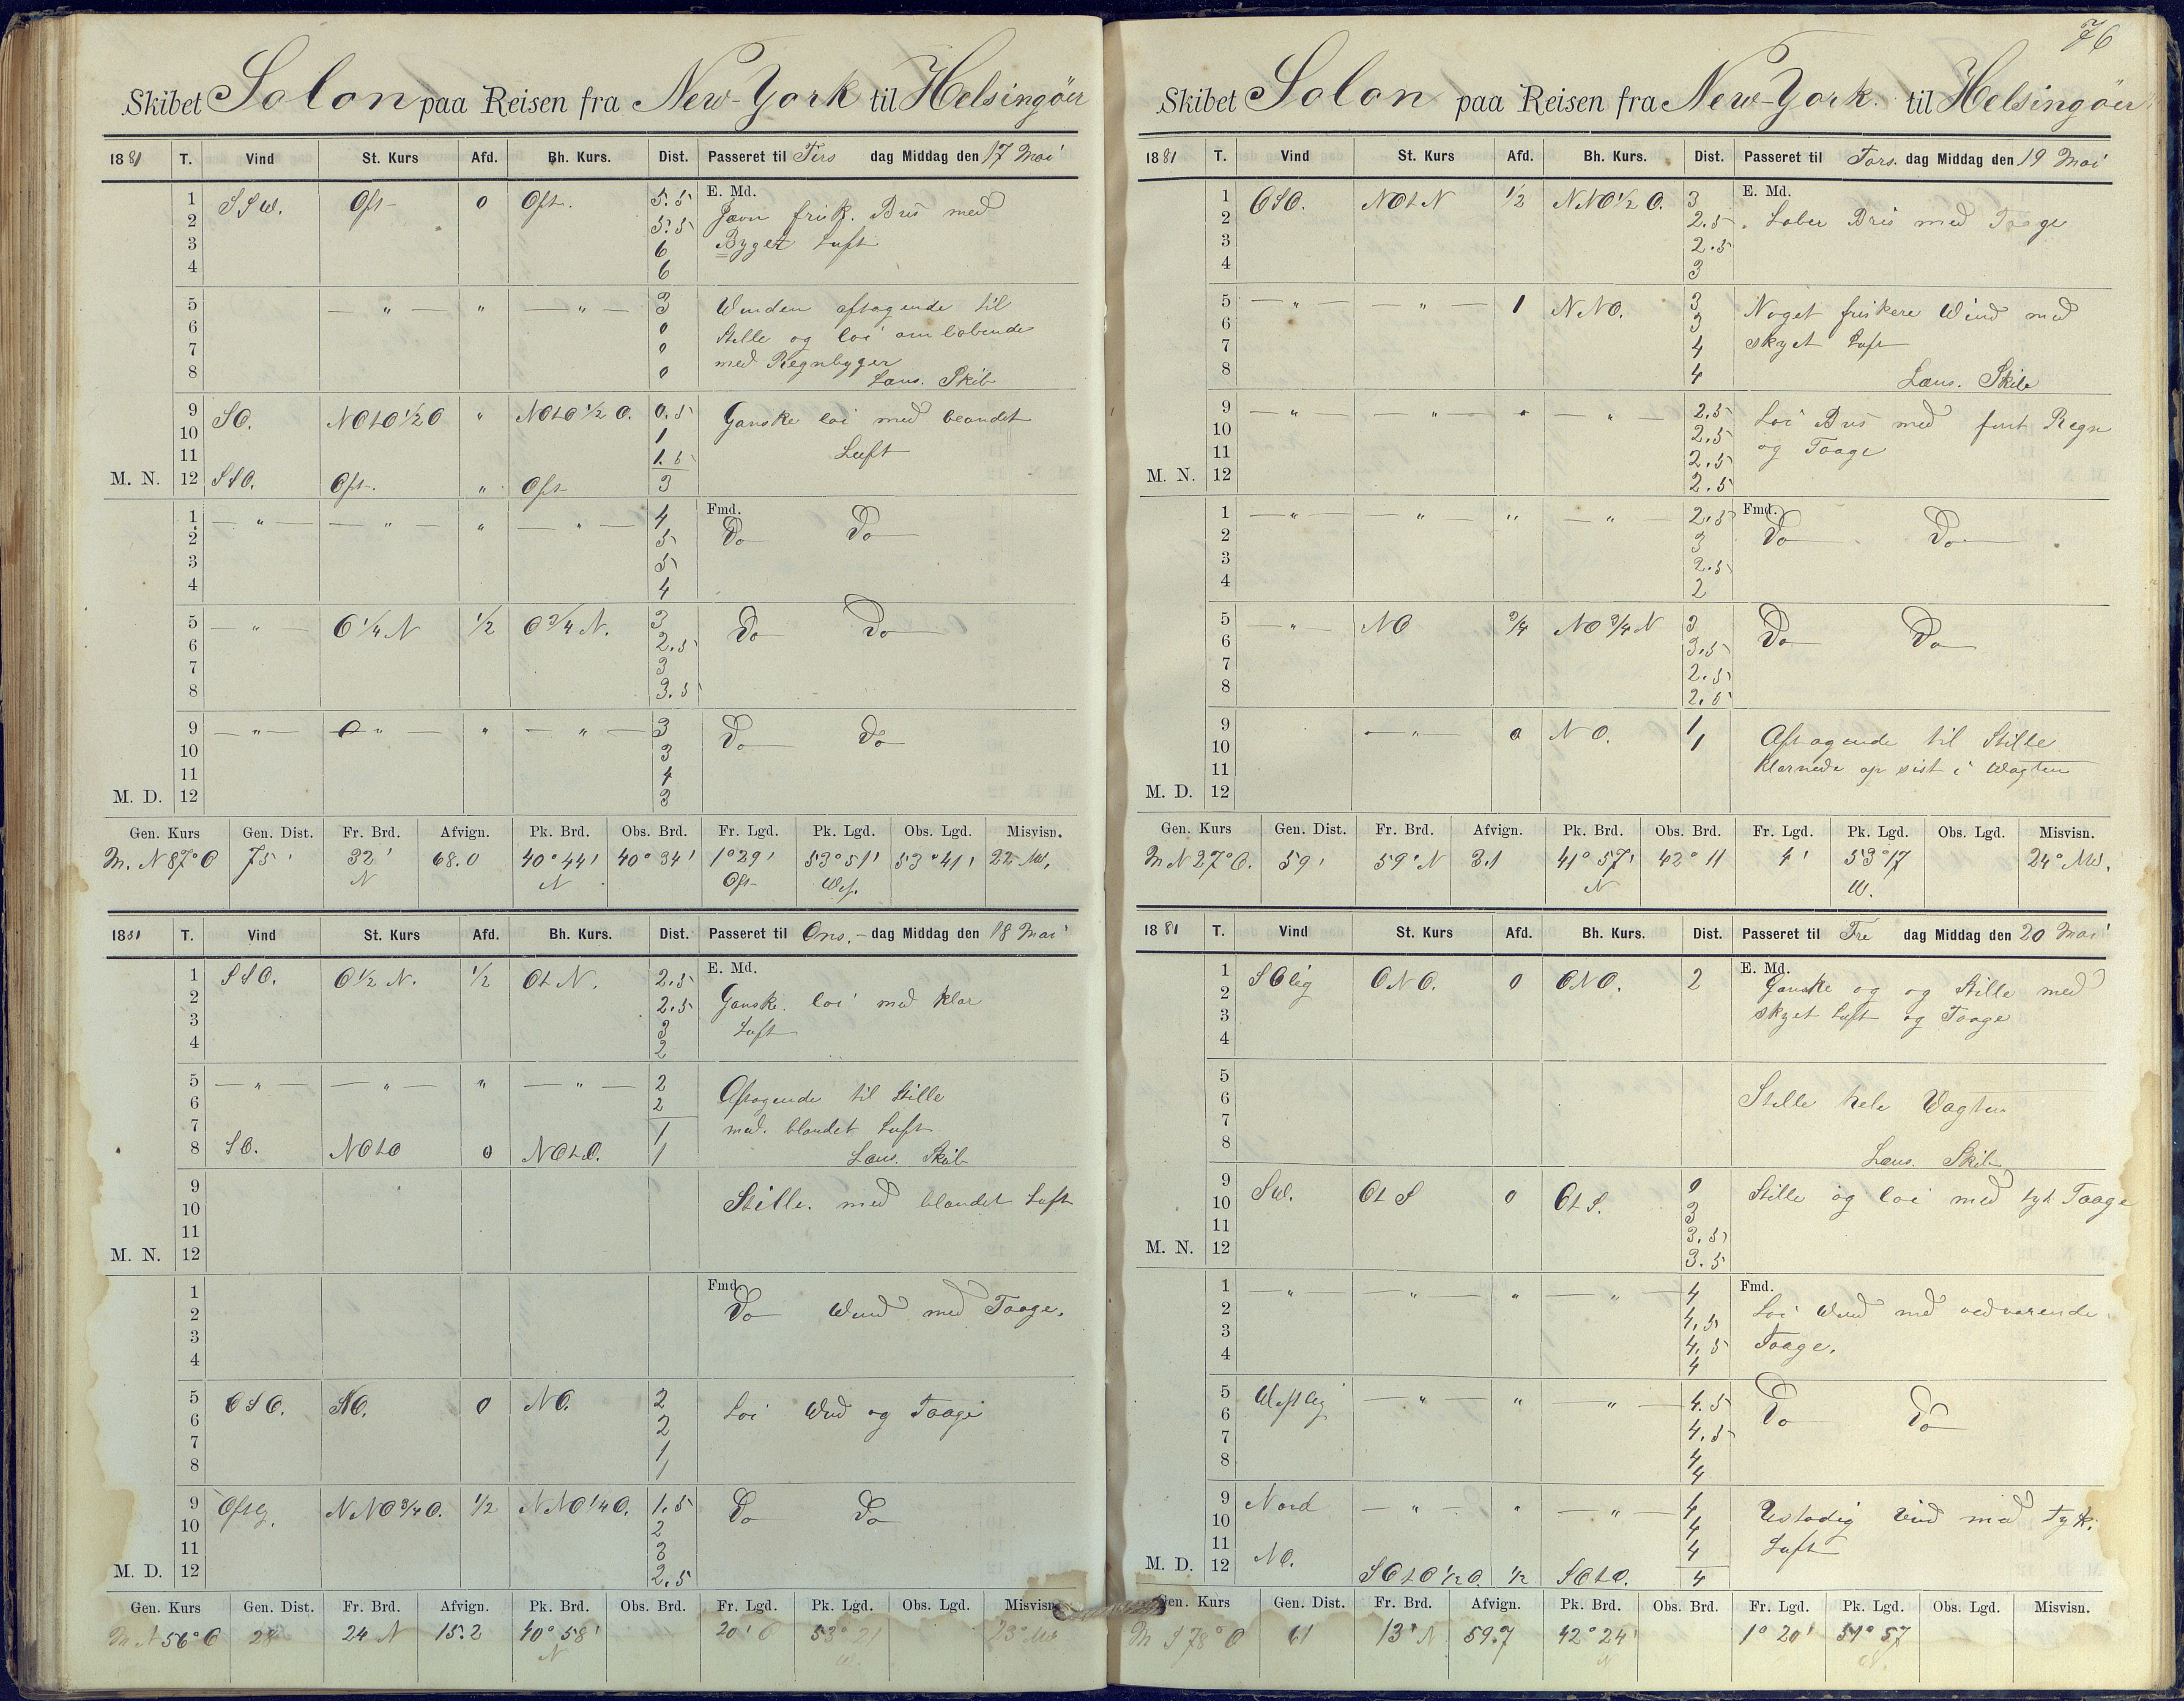 Skibet Solon paa Reisen fra New-York til Helsingöer
1881 T. Vind St. Kurs Afd. Bh. Kurs. Dist. Passeret til Tirs dag Middag den 17 Mai
1 SSW. Ost 0 Ost. 5.5 E. Md.
2 5.5 Jævn frisk. Bris med
3 6 Byget Luft
4 6
5 — " — " — " — 3 Winden aftagende til
6 0 Stille og loi omlöbende
7 0 med Regnbyger
8 0 Læns. Skib
9 SO. NOtO½O " NOtO½O. 0.5 Ganske loi med blandet
10 1 Luft
11 1.5
M. N. 12 SSO. Ost. " Ost 3
1 — " — — " — " — " — 4 Fmd.
2 5 Do Do
3 5
4 4
5 — " — O¼N ½ O¾N. 3 Do Do
6 2.5
7 3
8 3.5
9 — " — O " — " — " — 3 Do Do
10 3
11 4
M. D. 12 3
Gen. Kurs Gen. Dist. Fr. Brd. Afvign. Pk. Brd. Obs. Brd. Fr. Lgd. Pk. Lgd. Obs. Lgd. Misvisn.
M. N 87° O 75' 32' 68.0 40° 44' 40° 34' 1° 29' 53° 51' 53° 41' 22° NW.
N N Ost W
1881 T. Vind St. Kurs Afd. Bh. Kurs. Dist. Passeret til Ons. - dag Middag den 18 Mai
1 SSO. O½N. ½ OtN. 2.5 E. Md.
2 2.5 Ganske. loi med klar
3 3 Luft
4 2
5 — " — — " — " — " — 2 Aftagende til Stille
6 2
7 1 med. blandet Luft
8 SO. NOtO 0 NOtO. 1 Læns. Skib
9 Stille. med blandet Luft
10
11
M. N. 12
1 Fmd.
2 Do Wind med Taage.
3
4
5 OSO. NO. 0 NO. 2 Loi Wind og Taage
6 2
7 1
8 1
9 Ostlg. NNO¾O. ½ NNO¼O. 1.5 Do Do
10 2
11 3
M. D. 12 2.5
Gen. Kurs Gen. Dist. Fr. Brd. Afvign. Pk. Brd. Obs. Brd. Fr. Lgd. Pk. Lgd. Obs. Lgd. Misvisn.
M N 56° O 28 24 N 15.2 40° 58' 20' O 53° 21 23° NW
N W.
76
Skibet Solon paa Reisen fra New-York. til Helsingöer
1881 T. Vind St. Kurs Afd. Bh. Kurs. Dist. Passeret til Tors. dag Middag den 19 Mai
1 OSO. NOtN ½ NNO½O. 3 E. Md.
2 2.5 Laber Bris med Taage
3 2.5
4 3
5 — " — — " — 1 NNO. 3 Noget friskere Wind med
6 3
7 4 skyet Luft
8 4 Læns. Skib
9 — " — — " — " — " — 2.5 Loi Bris med fint Regn
10 2.5
11 2.5 og Taage
M. N. 12 2.5
1 — " — — " — " — " — 2.5 Fmd.
2 3 Do Do
3 2.5
4 2
5 — " — NO ¾ NO¾N 3 Do Do
6 3.5
7 2.5
8 2.5
9 — " — 0 NO. 1 Aftagende til Stille
10 1
11 klarnede op sist i Wagten
M. D. 12
Gen. Kurs Gen. Dist. Fr. Brd. Afvign. Pk. Brd. Obs. Brd. Fr. Lgd. Pk. Lgd. Obs. Lgd. Misvisn.
M N 27° O. 59' 59' N 3.1 41° 57' 42° 11 4' 53° 17 24° NW.
N W.
1881 T. Vind St. Kurs Afd. Bh. Kurs. Dist. Passeret til Fre dag Middag den 20 Mai
1 SOlig ONO. 0 ONO. 2 E. Md.
2 Ganske og og Stille med
3 skyet Luft og Taage
4
5
6 Stille hele Vagten
7
8 Læns. Skib
9 SW. OtS 0 OtS. 0 Stille og loi med tyk Taage
10 3
11 3.5
M. N. 12 3.5
1 — " — — " — " — " — 4 Fmd.
2 4.5 Loi Wind med vedvarende
3 4.5 Taage.
4 4
5 Westlig — " — " — " — 4.5 Do Do
6 4.5
7 4
8 4
9 Nord — " — " — " — 4 Ustadig Vind med Tyk.
10 4
11 NO. 4 Luft
M. D. 12 SOtO½O. ½ SOtO. 4
Gen. Kurs Gen. Dist. Fr. Brd. Afvign. Pk. Brd. Obs. Brd. Fr. Lgd. Pk. Lgd. Obs. Lgd. Misvisn.
M S 78° O 61 13' N 59.7 42° 24' 1° 20' 51° 57
N W.